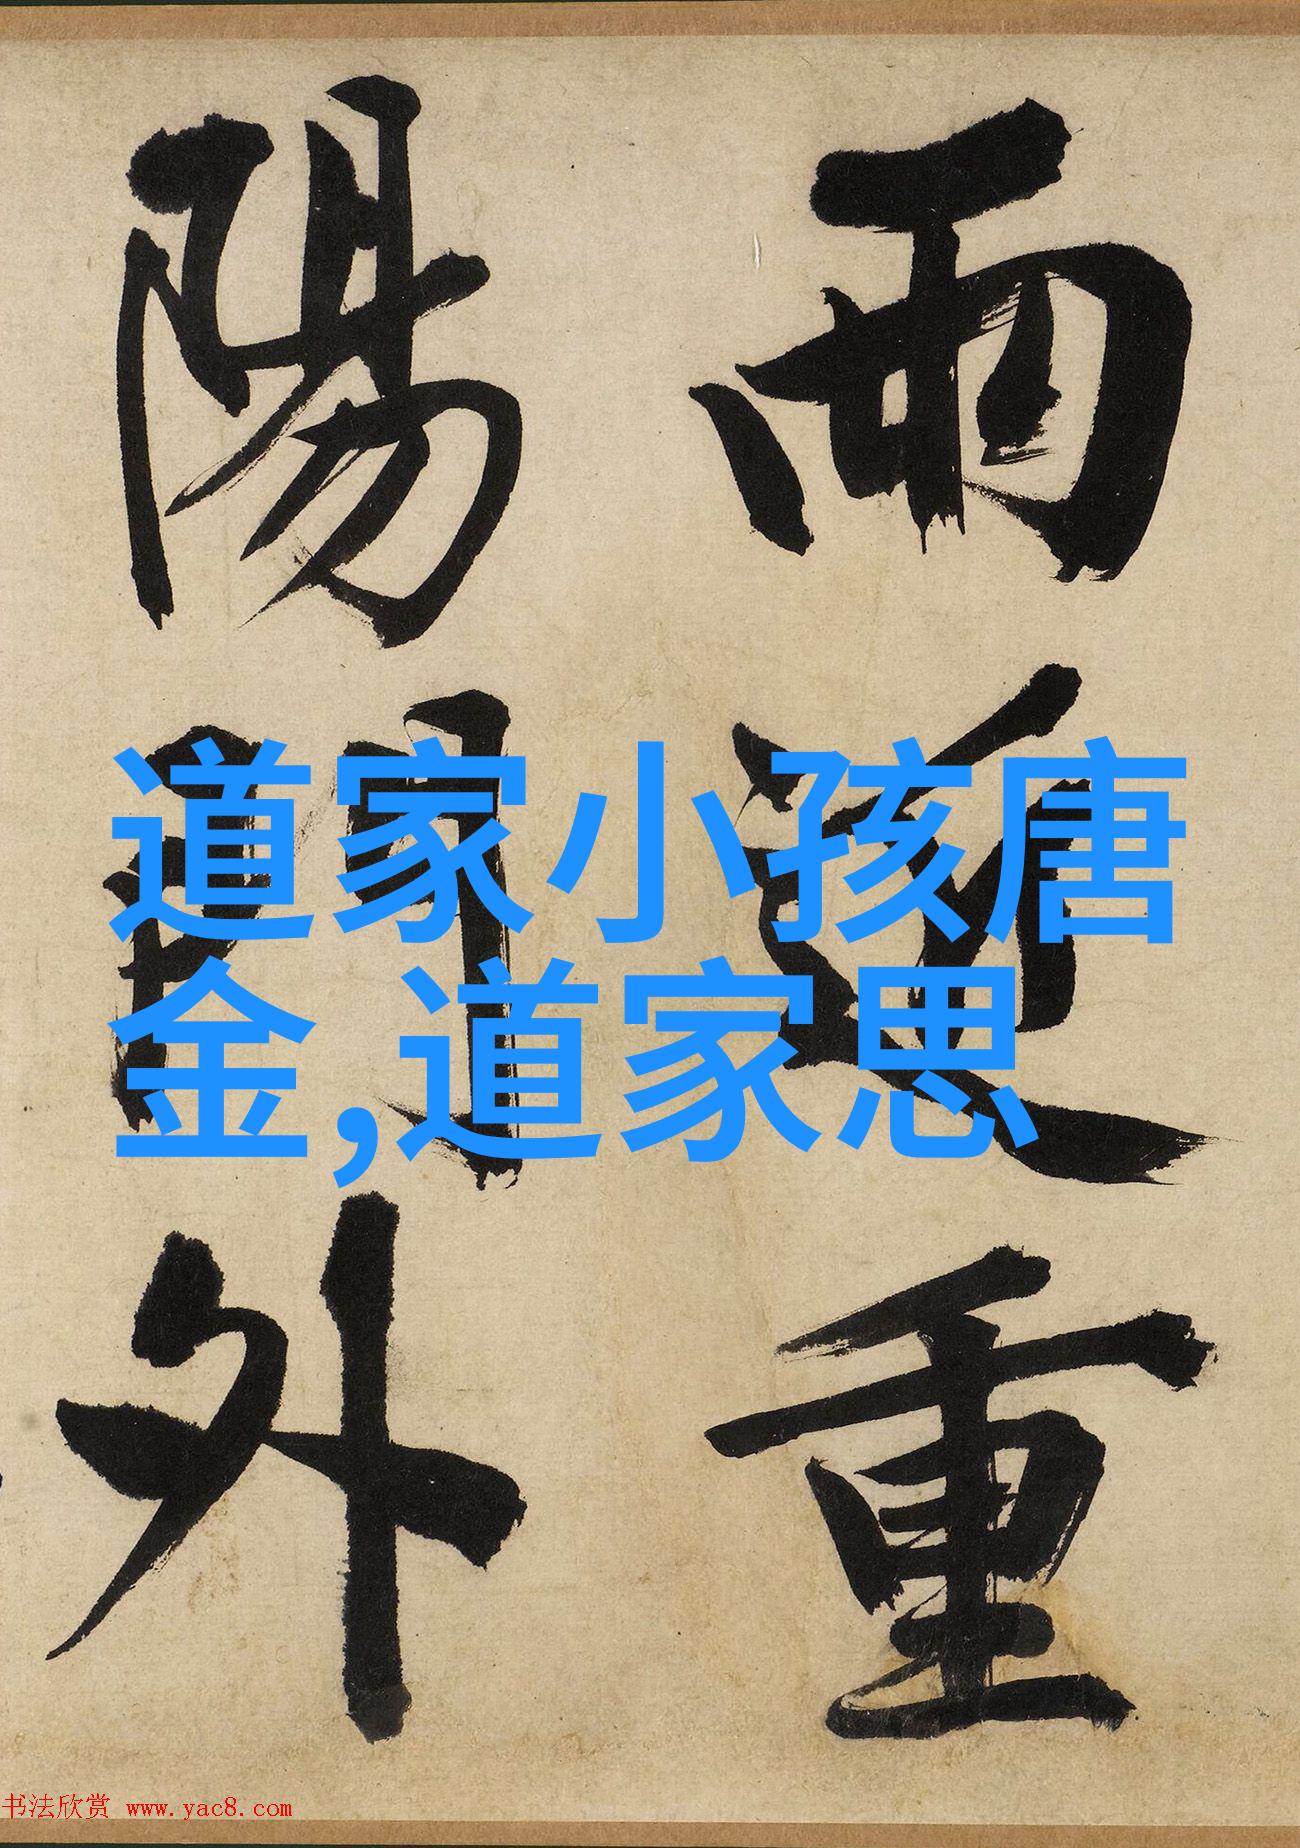 雨近重
陽門外
道家小孩唐
金,道家思
书法欣赏 www.yac8.com